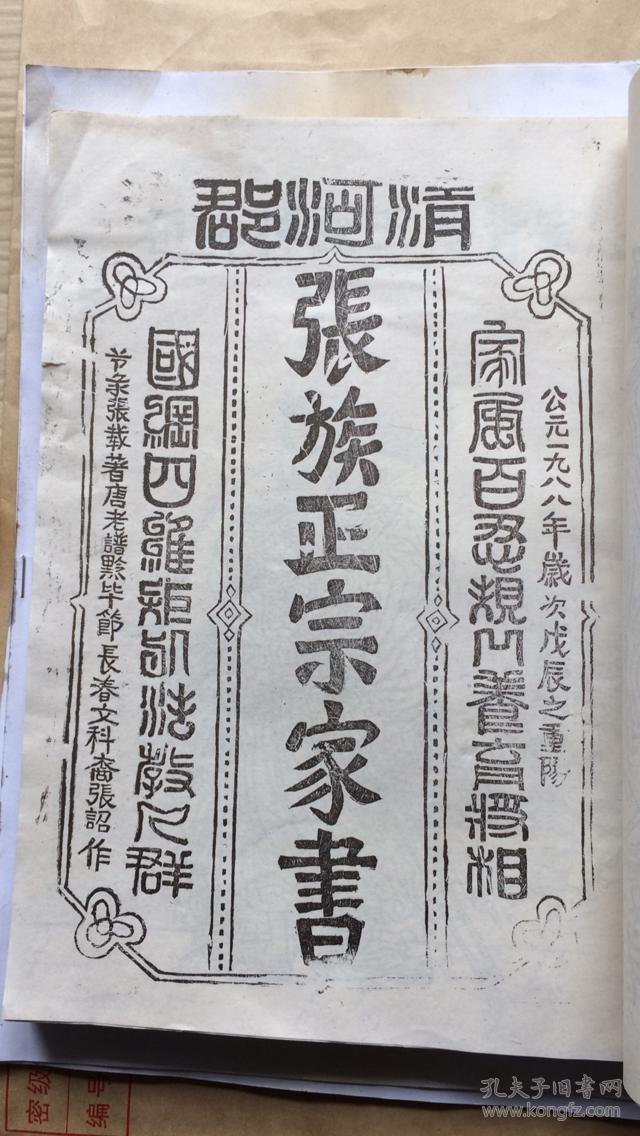 清河郡
公元一九八八年歲次戊辰之重陽
家風百忍規養育將相
張族正宗家書
國綱四維矩法教人群
节录張載著唐老譜黔毕節長春文科裔張詔作
密级
编号
孔夫子旧书网
www.kongfz.com